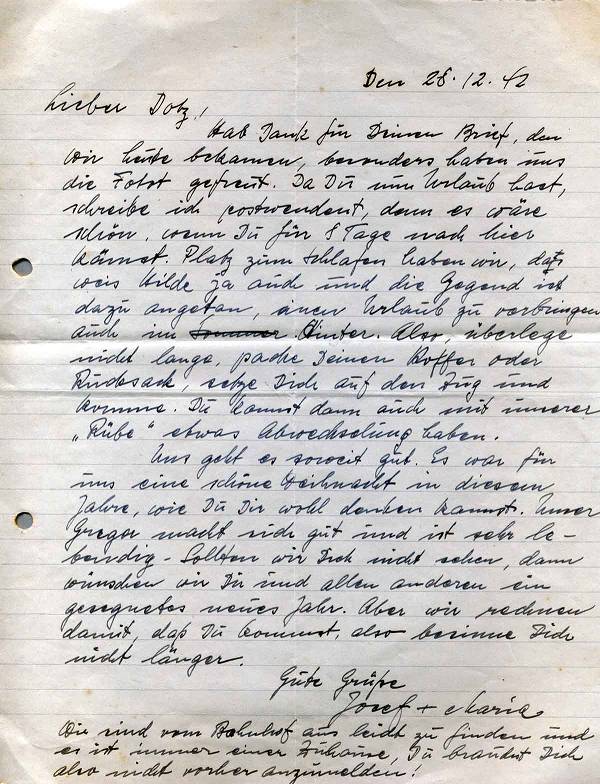 Den 28.12.42
Lieber Dotz!
Hab Dank für Deinen Brief, den
wir heute bekamen, besonders haben uns
die Fotos gefreut. Da Du nun Urlaub hast,
schreibe ich postwendent, denn es wäre
schön, wenn Du für 8 Tage nach hier
kämst. Platz zum schlafen haben wir, daß
weis Hilde ja auch und die Gegend ist
dazu angetan, einen Urlaub zu verbringen
auch im Sommer Winter. Also, überlege
nicht lange, packe Deinen Koffer oder
Rucksack, setze Dich auf den Zug und
komme. Du kannst dann auch mit unserer
„Rübe“ etwas Abwechselung haben.
Uns geht es soweit gut. Es war für
uns eine schöne Weihnacht in diesem
Jahre, wie Du Dir wohl denken kannst. Unser
Gregor macht sich gut und ist sehr le-
bendig. Sollten wir Dich nicht sehen, dann
wünschen wir Dir und allen anderen ein
gesegnetes neues Jahr. Aber wir rechnen
damit, daß Du kommst, also besinne Dich
nicht länger.
Gute Grüße
Josef + Maria
Wir sind vom Bahnhof aus leicht zu finden und
es ist immer einer Zuhause, Du brauchst Dich
also nicht vorher anzumelden!